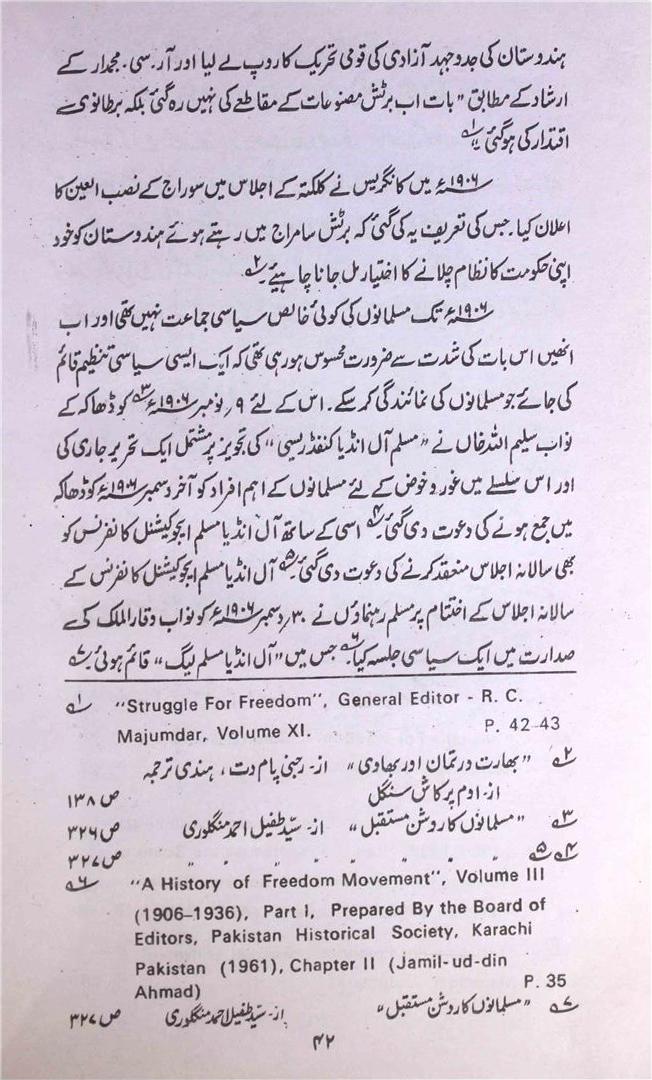 ہندوستان کی جدوجہد آزادی کی قومی تحریک کا روپ لے لیا اور آر۔سی۔ مجمدار کے
ارشاد کے مطابق "بات اب برٹش مصنوعات کے مقاطعے کی نہیں رہ گئی بلکہ برطانوی
اقتدار کی ہوگئی" ۱؎
۱۹۰۶ء میں کانگریس نے کلکتہ کے اجلاس میں سوراج کے نصب العین کا
اعلان کیا۔ جس کی تعریف یہ کی گئی کہ برٹش سامراج میں رہتے ہوئے ہندوستان کو خود
اپنی حکومت کا نظام چلانے کا اختیار مل جانا چاہیئے ۲؎
۱۹۰۶ء تک مسلمانوں کی کوئی خالص سیاسی جماعت نہیں تھی اور اب
انھیں اس بات کی شدت سے ضرورت محسوس ہورہی تھی کہ ایک ایسی سیاسی تنظیم قائم
کی جائے جو مسلمانوں کی نمائندگی کرسکے۔ اس کے لئے ۹؍ نومبر ۱۹۰۶ء ۳؎ کو ڈھاکہ کے
نواب سلیم اللہ خاں نے "مسلم آل انڈیا کنفڈریسی" کی تجویز پر مشتمل ایک تحریر جاری کی
اور اس سلسلے میں غور و خوض کے لئے مسلمانوں کے اہم افراد کو آخر دسمبر ۱۹۰۶ء کو ڈھاکہ
میں جمع ہونے کی دعوت دی گئی ۴؎ اسی کے ساتھ آل انڈیا مسلم ایجوکیشنل کانفرنس کو
بھی سالانہ اجلاس منعقد کرنے کی دعوت دی گئی ۵؎ آل انڈیا مسلم ایجوکیشنل کانفرنس کے
سالانہ اجلاس کے اختتام پر مسلم رہنماؤں نے ۳۰؍ دسمبر ۱۹۰۶ء کو نواب وقارالملک کی
صدارت میں ایک سیاسی جلسہ کیا ۶؎ جس میں "آل انڈیا مسلم لیگ" قائم ہوئی ۷؎
۱؎ "Struggle For Freedom", General Editor - R. C.
Majumdar, Volume XI. P. 42-43
۲؎ "بھارت ورتمان اور بھاوی" از۔ رجنی پام دت، ہندی ترجمہ
از۔ اوم پرکاش سنگل ص ۱۳۸
۳؎ "مسلمانوں کا روشن مستقبل" از۔ سید طفیل احمد منگلوری ص ۳۲۶
۴؎ ۵؎ " " " " " ص ۳۲۷
۶؎ "A History of Freedom Movement", Volume III
(1906-1936), Part I, Prepared By the Board of
Editors, Pakistan Historical Society, Karachi
Pakistan (1961), Chapter II (Jamil-ud-din
Ahmad) P. 35
۷؎ "مسلمانوں کا روشن مستقبل" از۔ سید طفیل احمد منگلوری ص ۳۲۷
۴۲